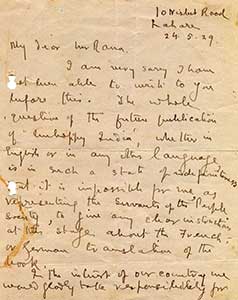 10 Nisbet Road
Lahore
24.5.29.
My dear Mr Rana.
I am very sorry I have
not been able to write to you
before this. The whole
question of the future publication
of "Unhappy India", whether in
English or in any other language
is in such a state of indefiniteness
that it is impossible for me, as
representing the Servants of the People
Society, to give any clear instructions
at this stage about the French
or German translation of the
book.
In the interest of our country we
would gladly take responsibility for